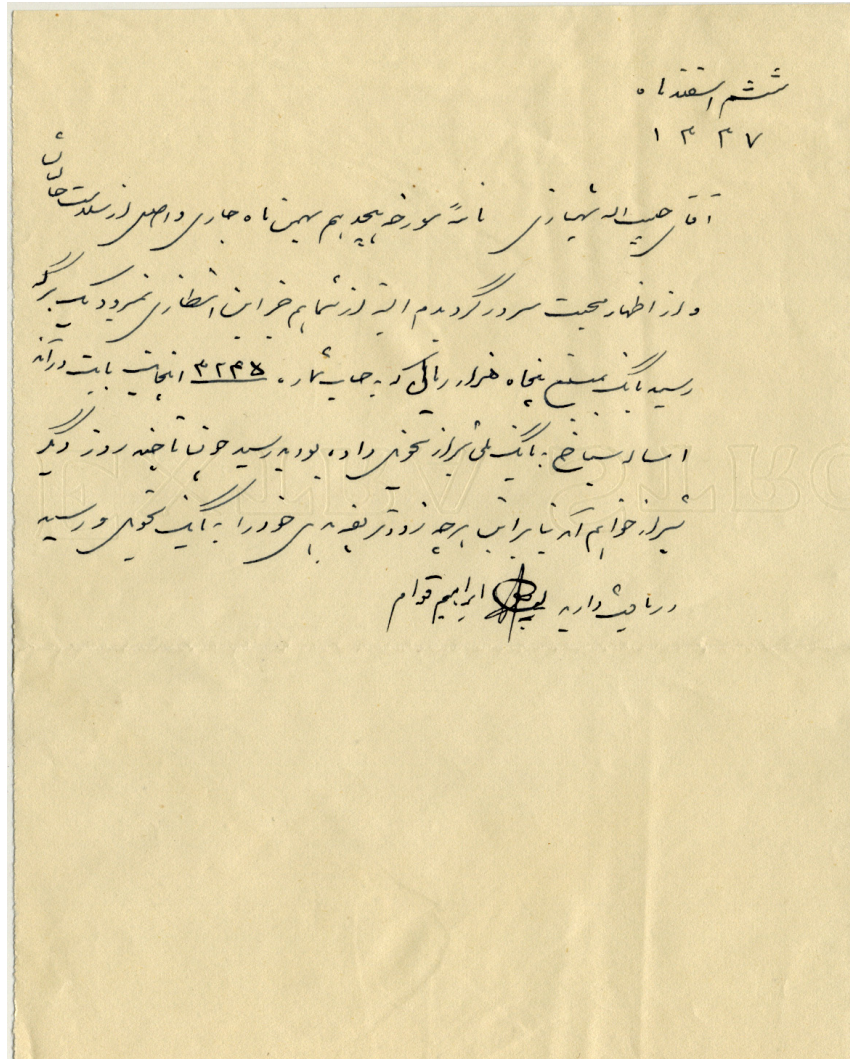 ششم اسفند ماه
۱۳۳۷
آقای حبیب اله شهبازی نامه مورخه هیجدهم بهمن ماه جاری واصل از سلامت حالتان
و از اظهار محبت مسرور گردیدم البته از شما هم جز این انتظاری نمیرود یک برگ
رسید بانک بمبلغ پنجاه هزار ریالی که به حساب شماره اینجانب بابت درآمد
امساله سیاخ به بانک ملی شیراز تحویل داده بودید رسید ضمناً تا چند روز دیگر
شیراز خواهم آمد بنابراین هرچه زودتر بقیه بدهی خود را به بانک تحویل و رسید
دریافت دارید ابراهیم قوام